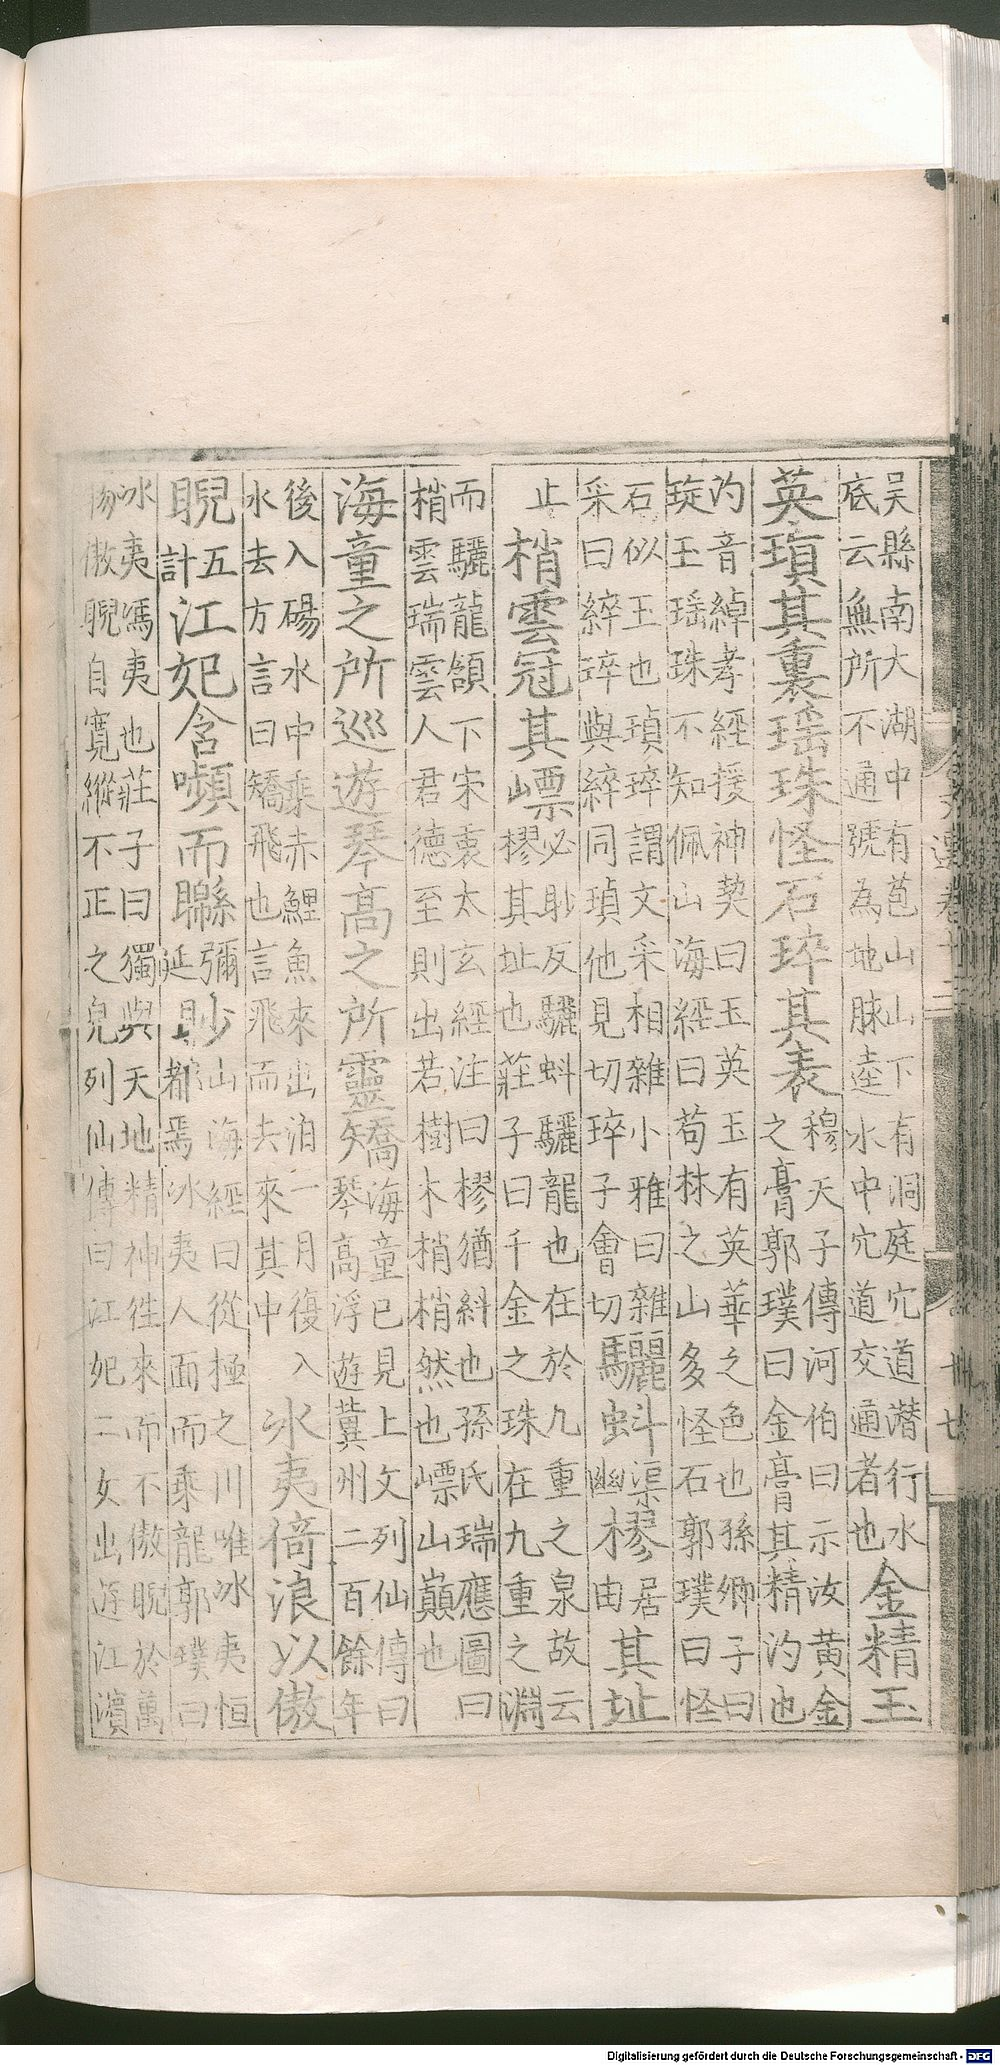 吳縣南大湖中有苞山山下有洞庭穴道潜行水
底云無所不通號為地脉逵水中穴道交通者也
金精玉
英瑱其裏瑶珠怪石琗其表
穆天子傳河伯曰示汝黄金
之膏郭璞曰金膏其精汋也
汋音綽孝經援神契曰玉英玉有英華之色也孫卿子曰
琁玉瑶珠不知佩山海經曰苟林之山多怪石郭璞曰怪
石似玉也瑱琗謂文采相雜小雅曰雜
采曰綷琗與綷同瑱他見切琗子會切
驪虬
渠
幽
樛
居
由
其址
止
梢雲冠其㟽
必眇反驪虬驪龍也在於九重之泉故云
樛其址也莊子曰千金之珠在九重之淵
而驪龍頷下宋衷太玄經注曰樛猶糾也孫氏瑞應圖曰
梢雲瑞雲人君德至則出若樹木梢梢然也㟽山巔也
海童之所巡遊琴高之所靈矯
海童已見上文列仙傳曰
琴高浮遊冀州二百餘年
後入碭水中乘赤鯉魚來出泊一月復入
水去方言曰矯飛也言飛而去來其中
冰夷倚浪以傲
睨
五
計
江妃含嚬而矊
彌
延
眇
山海經曰從極之川唯冰夷恒
都焉冰夷人面而乘龍郭璞曰
冰夷馮夷也莊子曰獨與天地精神往來而不傲睨於萬
物傲睨自寬縱不正之皃列仙傳曰江妃二女出遊江濱
Digitalisierung gefördert durch die Deutsche Forschungsgemeinschaft - DFG